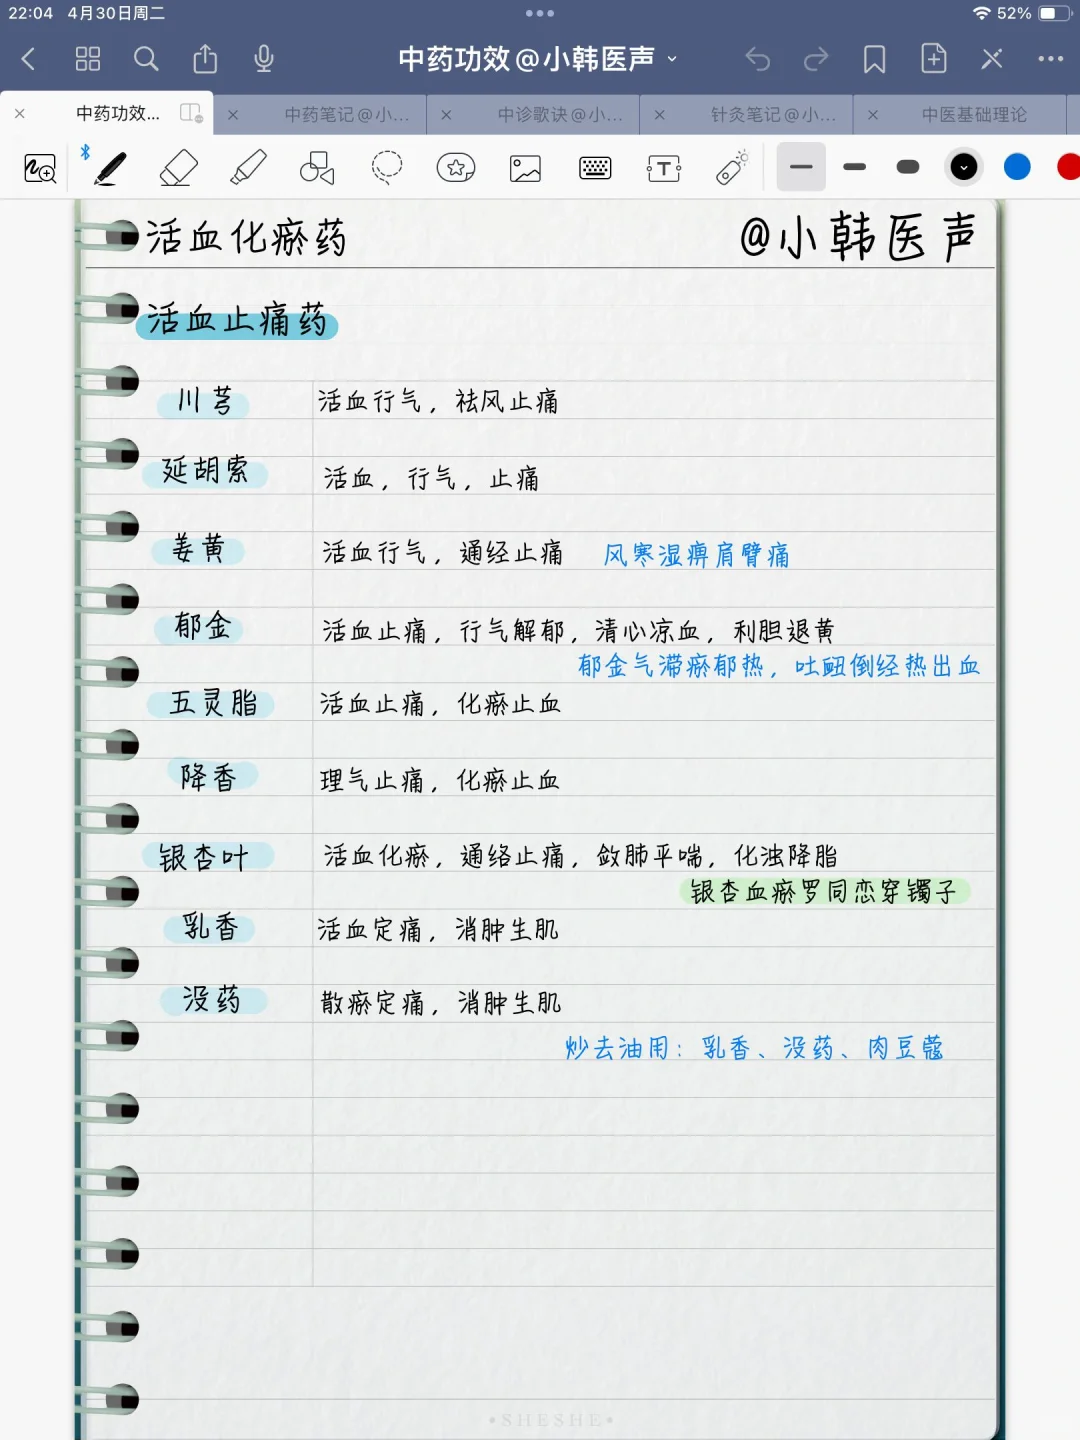 22:04 4月30日周二 52%
中药功效@小韩医声
中药功效... 中药笔记@小... 中诊歌诀@小... 针灸笔记@小... 中医基础理论
活血化瘀药 @小韩医声
活血止痛药
川芎 活血行气，祛风止痛
延胡索 活血，行气，止痛
姜黄 活血行气，通经止痛 风寒湿痹肩臂痛
郁金 活血止痛，行气解郁，清心凉血，利胆退黄
郁金气滞瘀郁热，吐衄倒经热出血
五灵脂 活血止痛，化瘀止血
降香 理气止痛，化瘀止血
银杏叶 活血化瘀，通络止痛，敛肺平喘，化浊降脂
银杏血瘀罗同恋穿镯子
乳香 活血定痛，消肿生肌
没药 散瘀定痛，消肿生肌
炒去油用：乳香、没药、肉豆蔻
•SHESHE•